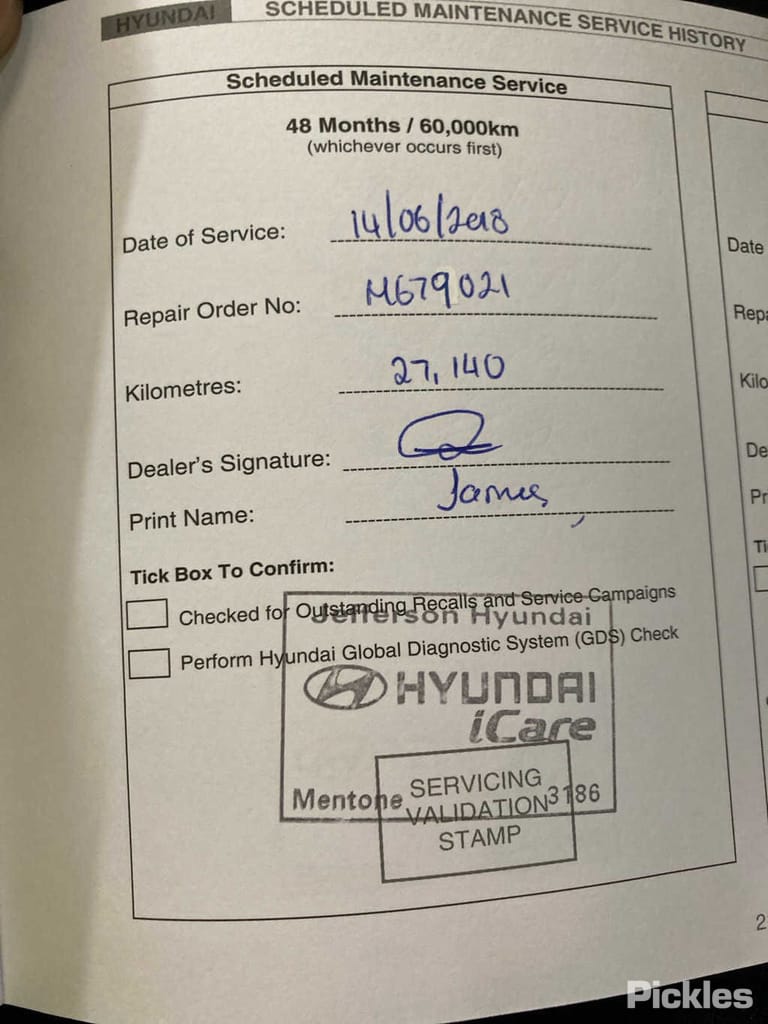 HYUNDAI
SCHEDULED MAINTENANCE SERVICE HISTORY
Scheduled Maintenance Service
48 Months / 60,000km
(whichever occurs first)
Date of Service: 14/06/2018
Repair Order No: M679021
Kilometres: 27,140
Dealer's Signature:
Print Name: James
Tick Box To Confirm:
Checked for Outstanding Recalls and Service Campaigns
Jefferson Hyundai
Perform Hyundai Global Diagnostic System (GDS) Check
HYUNDAI
iCare
Mentone 3186
SERVICING
VALIDATION
STAMP
Date
Repa
Kilo
De
Pr
Ti
2
Pickles